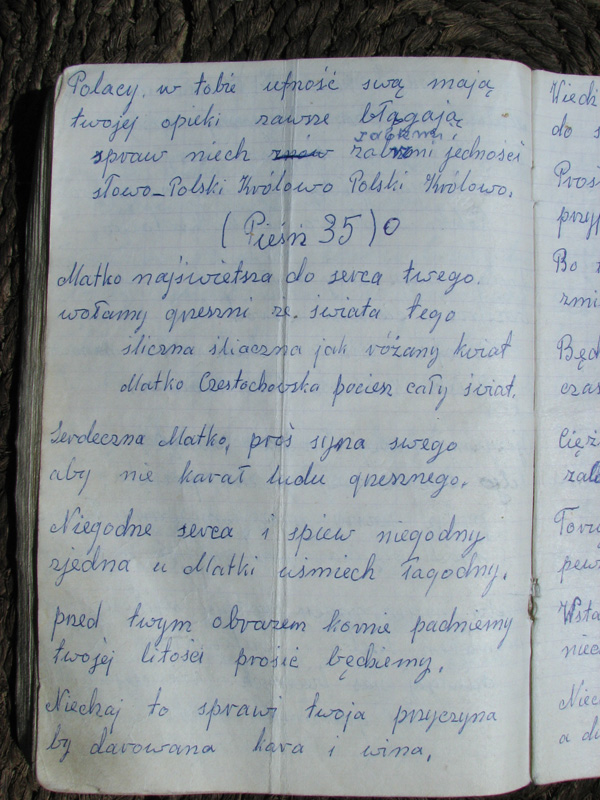 Polacy. w tobie ufność swą mają
twojej opieki zawsze błagają
spraw niech znów zabrzmi jedności
słowo_Polski Królowo Polski Królowo.
(Pieśń 35) O
Matko najświetsza do serca twego.
wołamy grzeszni ze. świata tego
śliczna śliaczna jak różany kwiat
Matko Czestochowska pociesz cały świat.
Serdeczna Matko, proś syna swego
aby nie karał ludu grzesznego.
Niegodne serca i spiew niegodny
zjedna u Matki uśmiech łagodny.
przed twym obrazem kornie padniemy
twojej litości prosić będziemy.
Niechaj to sprawi twoja przyczyna
by darowana kara i wina.
do s
Proś
przyj
Bo
zmi
Będ
czas
Cięż
pew
Wsta
niec
Niec
a du